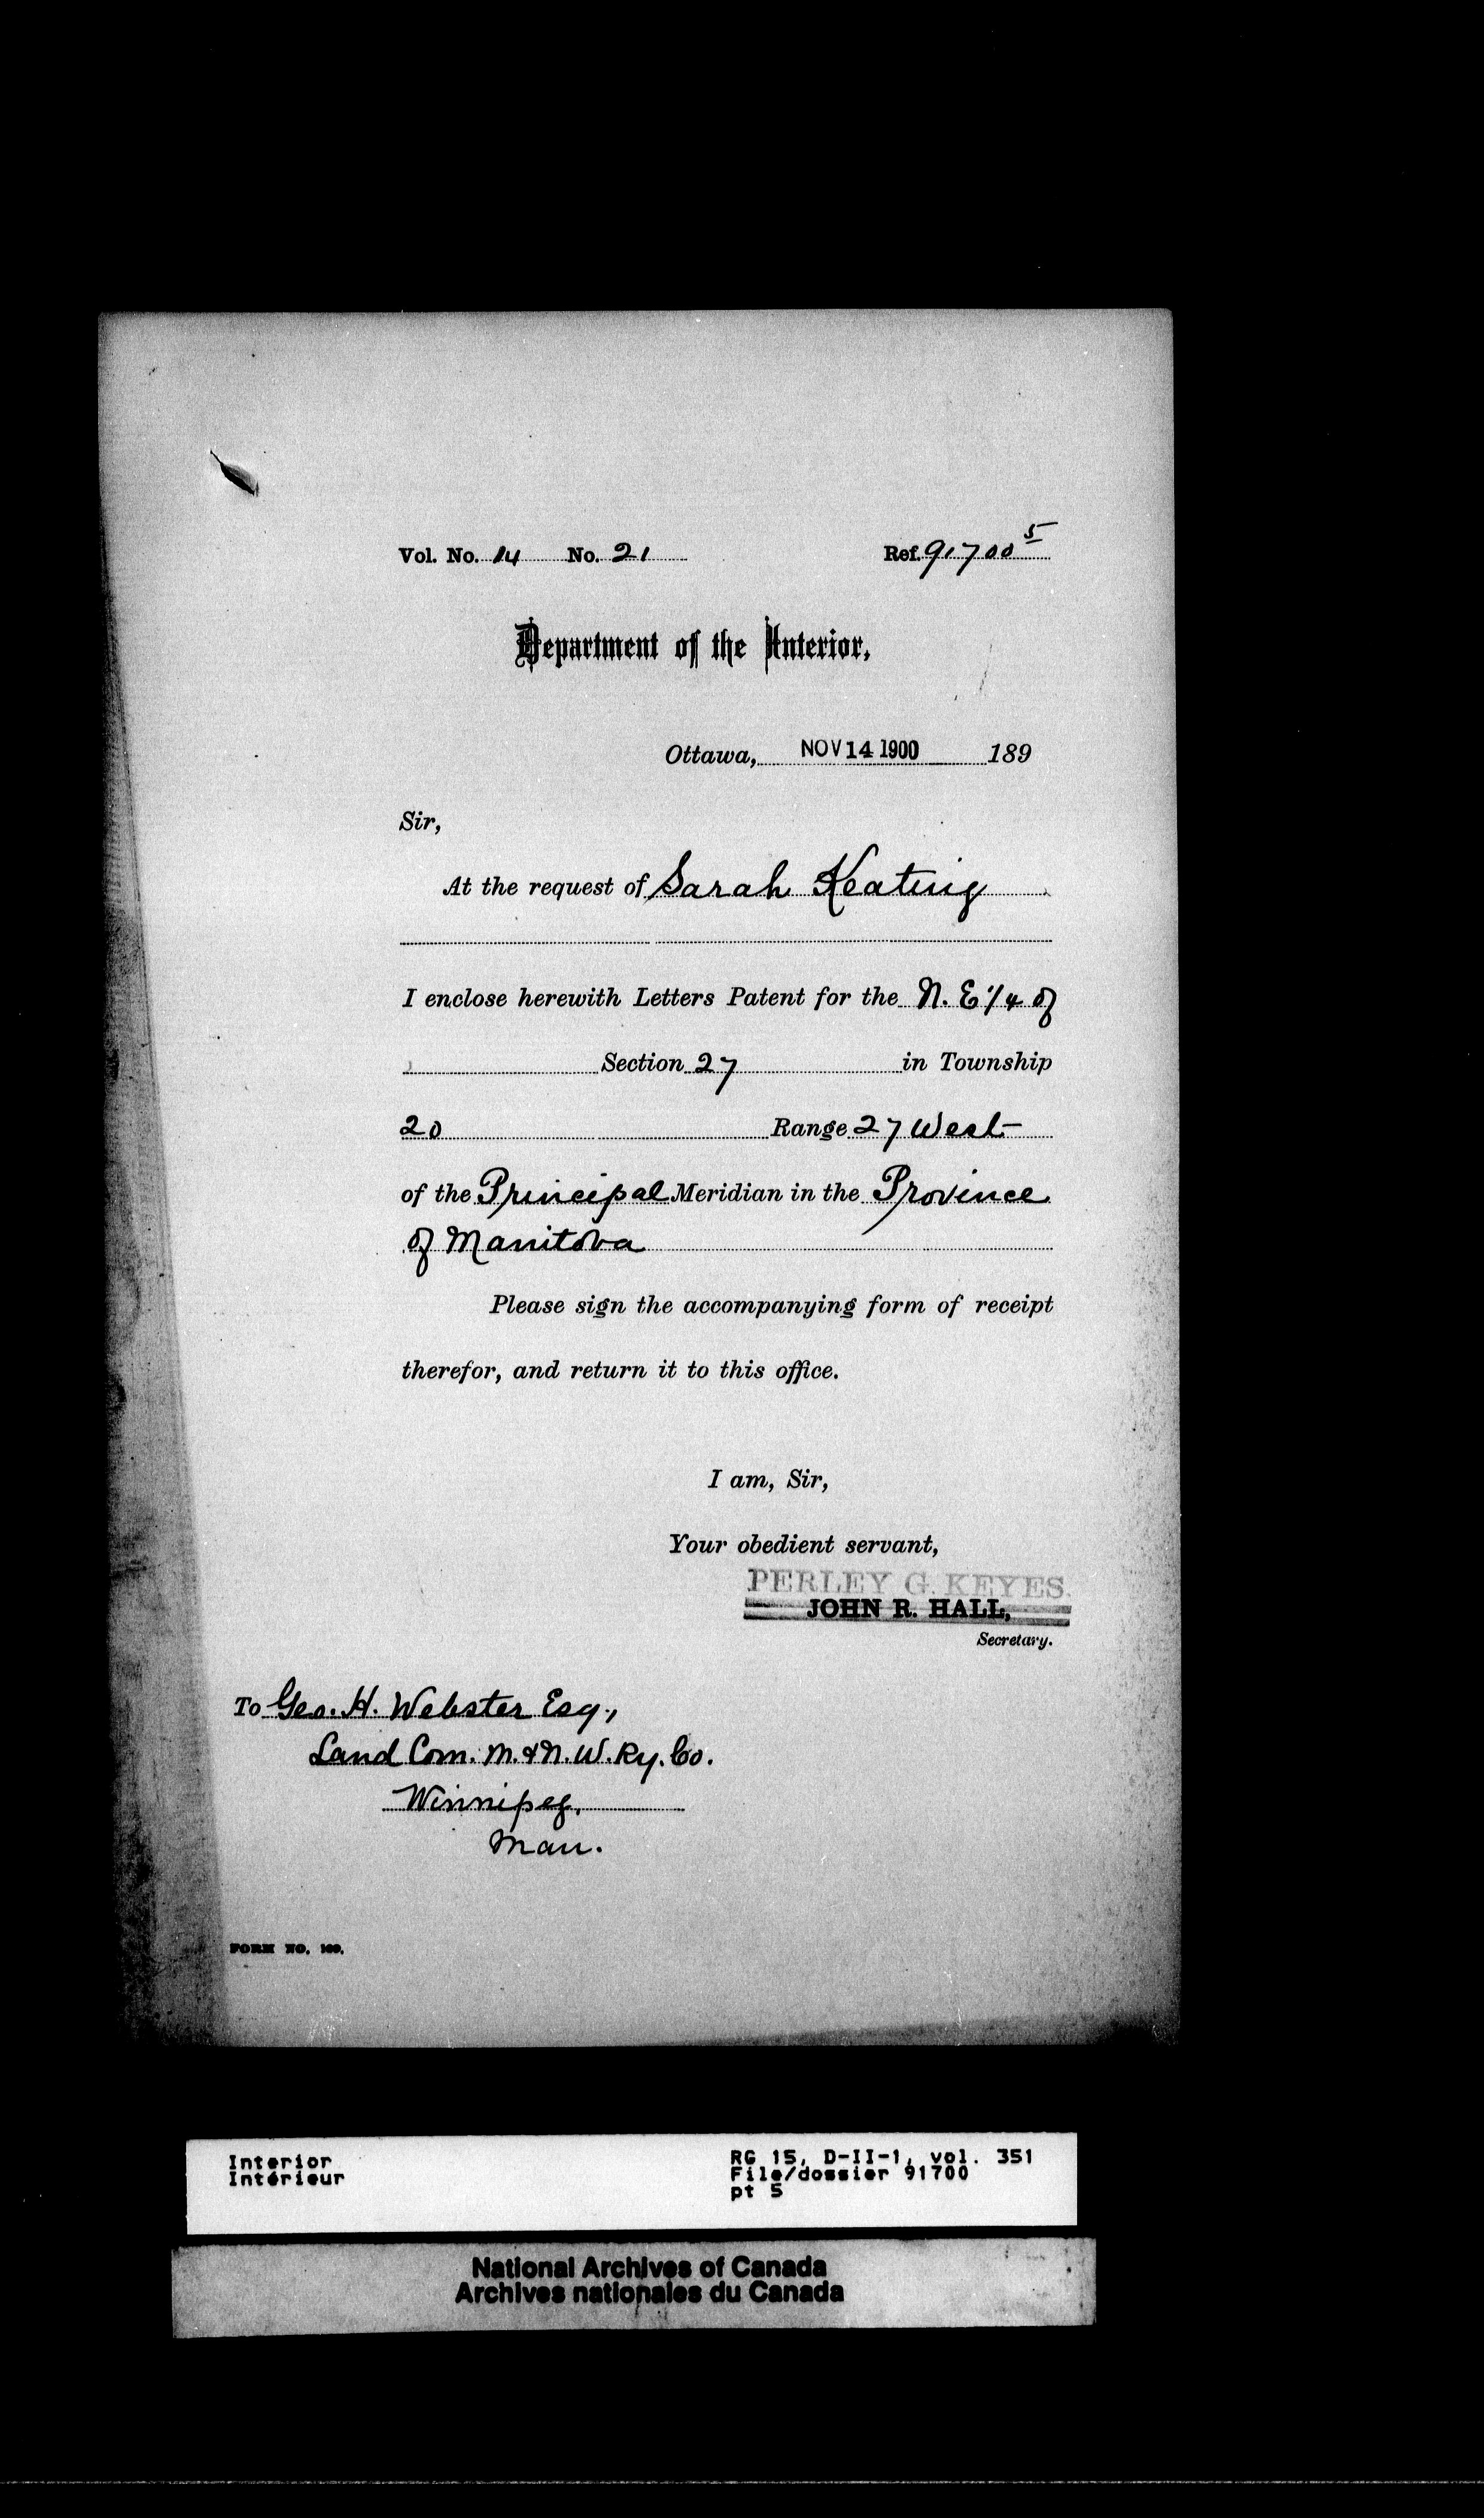 Vol. No. 14 No. 21 Ref. 91700 5
Department of the Interior,
Ottawa, NOV 14 1900 189
Sir,
At the request of Sarah Keating
I enclose herewith Letters Patent for the N. E 1/4 of
Section 27 in Township
20 Range 27 West
of the Principal Meridian in the Province
of Manitoba
Please sign the accompanying form of receipt
therefor, and return it to this office.
I am, Sir,
Your obedient servant,
PERLEY G. KEYES.
JOHN R. HALL,
Secretary.
To Geo. H. Webster Esq.,
Land Com. M. & N. W. Ry. Co.
Winnipeg,
Man.
FORM NO. 169.
Interior RG 15, D-II-1, vol. 351
Intérieur File/dossier 91700
pt 5
National Archives of Canada
Archives nationales du Canada